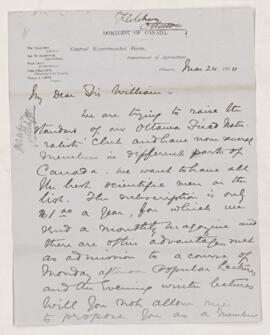 Fletcher
Ottawa
DOMINION OF CANADA.
Central Experimental Farm,
Department of Agriculture
Ottawa, Mar 24 1890
My Dear Sir William -
We are trying to raise the
standard of our Ottawa Field Nat-
uralists' Club and have now several
members in different parts of
Canada. We want to have all
the best scientific men on the
list. The subscription is only
$1 a Year, for which we
send a monthly magazine and
there are other advantages such
as admission to a course of
Monday afternoon Popular Lectures
and the Evening winter lectures
Will you not allow me
to propose you as a member